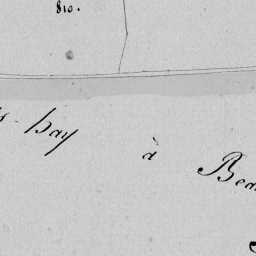 810.
hay à Bea